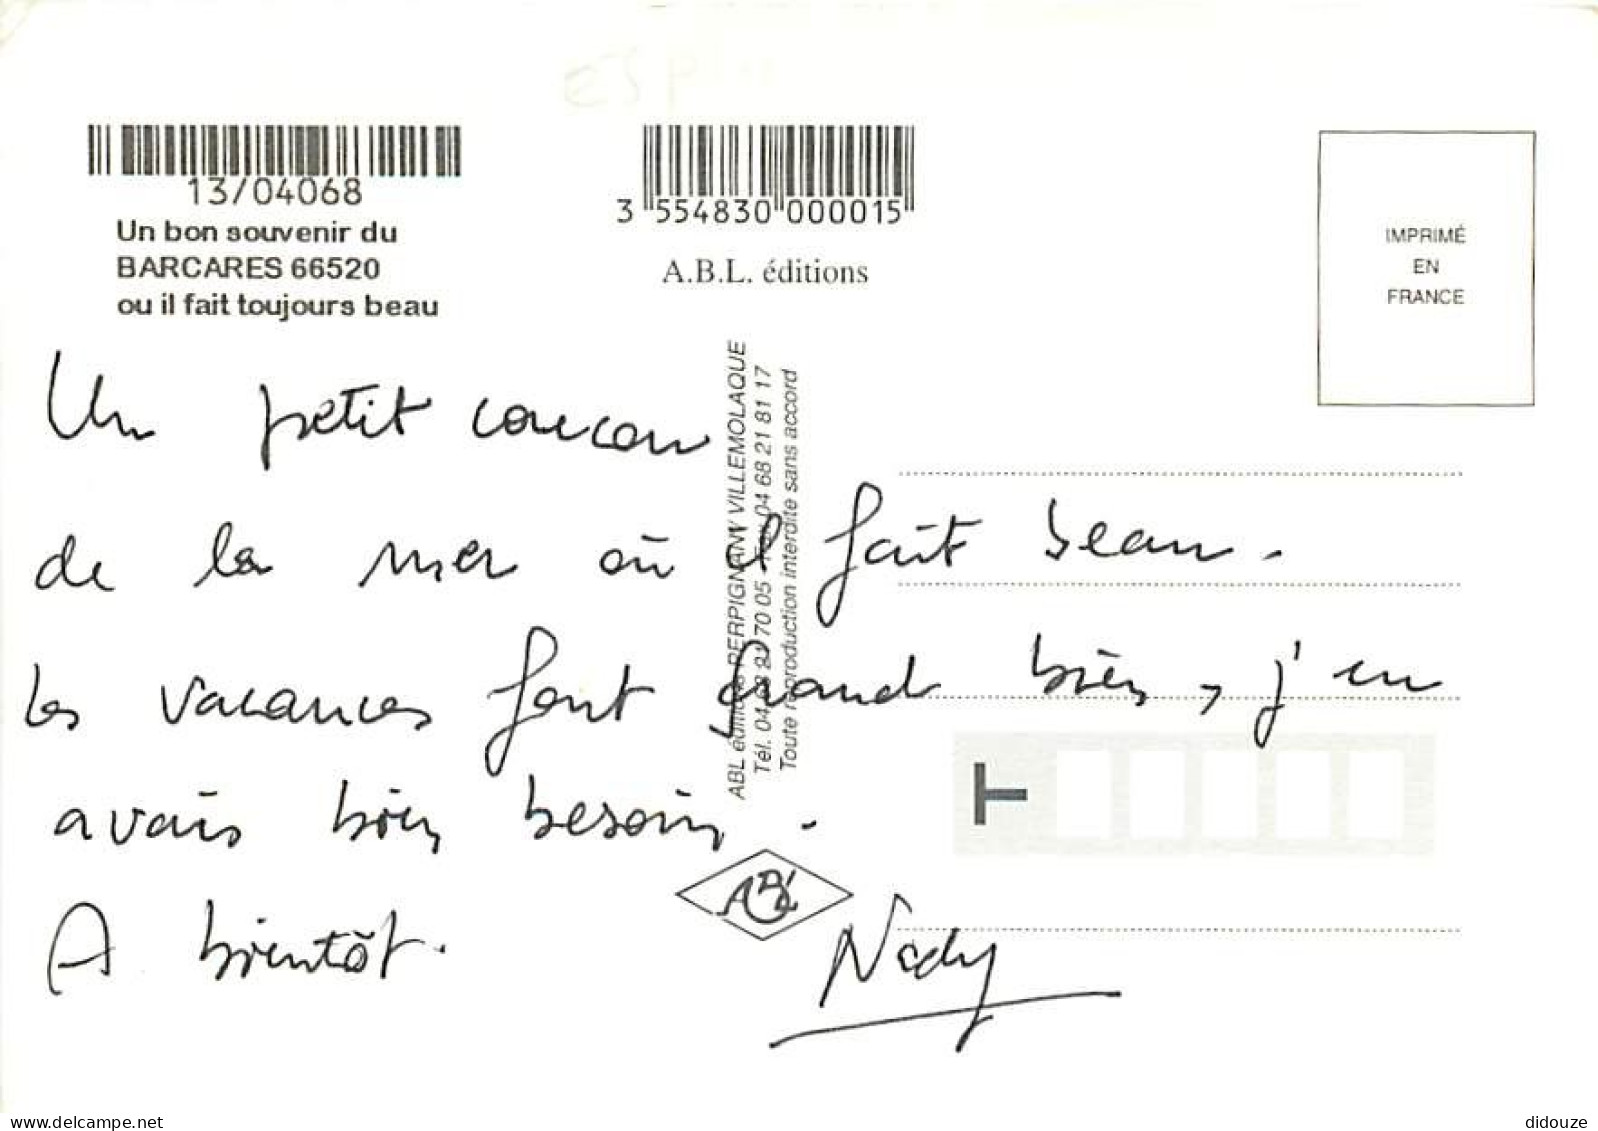 13/04068
Un bon souvenir du
BARCARES 66520
ou il fait toujours beau
3 554830 000015
A.B.L. éditions
IMPRIMÉ
EN
FRANCE
ABL éditions PERPIGNAN VILLEMOLAQUE
Tél. 04 68 21 70 05 - Fax 04 68 21 81 17
Toute reproduction interdite sans accord
Un petit coucou
de la mer où il fait beau.
Les vacances font grand bien, j'en
avais bien besoin.
A bientôt.
Nady
T
ABL
delcampe.net
didouze